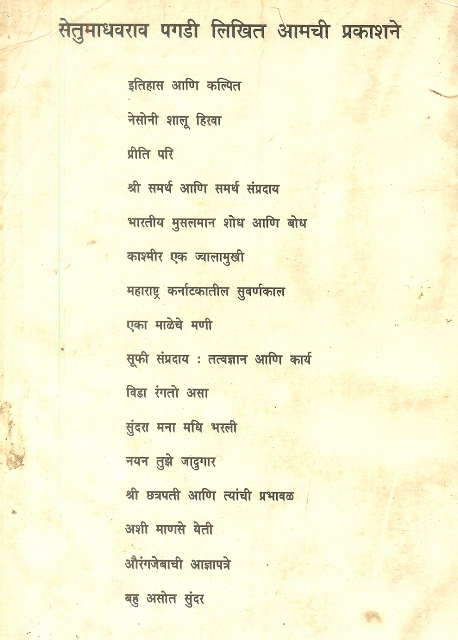 सेतुमाधवराव पगडी लिखित आमची प्रकाशने
इतिहास आणि कल्पित
नेसोनी शालू हिरवा
प्रीति परि
श्री समर्थ आणि समर्थ संप्रदाय
भारतीय मुसलमान शोध आणि बोध
काश्मीर एक ज्वालामुखी
महाराष्ट्र कर्नाटकातील सुवर्णकाल
एका माळेचे मणी
सूफी संप्रदाय : तत्वज्ञान आणि कार्य
विडा रंगतो असा
सुंदरा मना मधि भरली
नयन तुझे जादुगार
श्री छत्रपती आणि त्यांची प्रभावळ
अशी माणसे येती
औरंगजेबाची आज्ञापत्रे
बहु असोत सुंदर